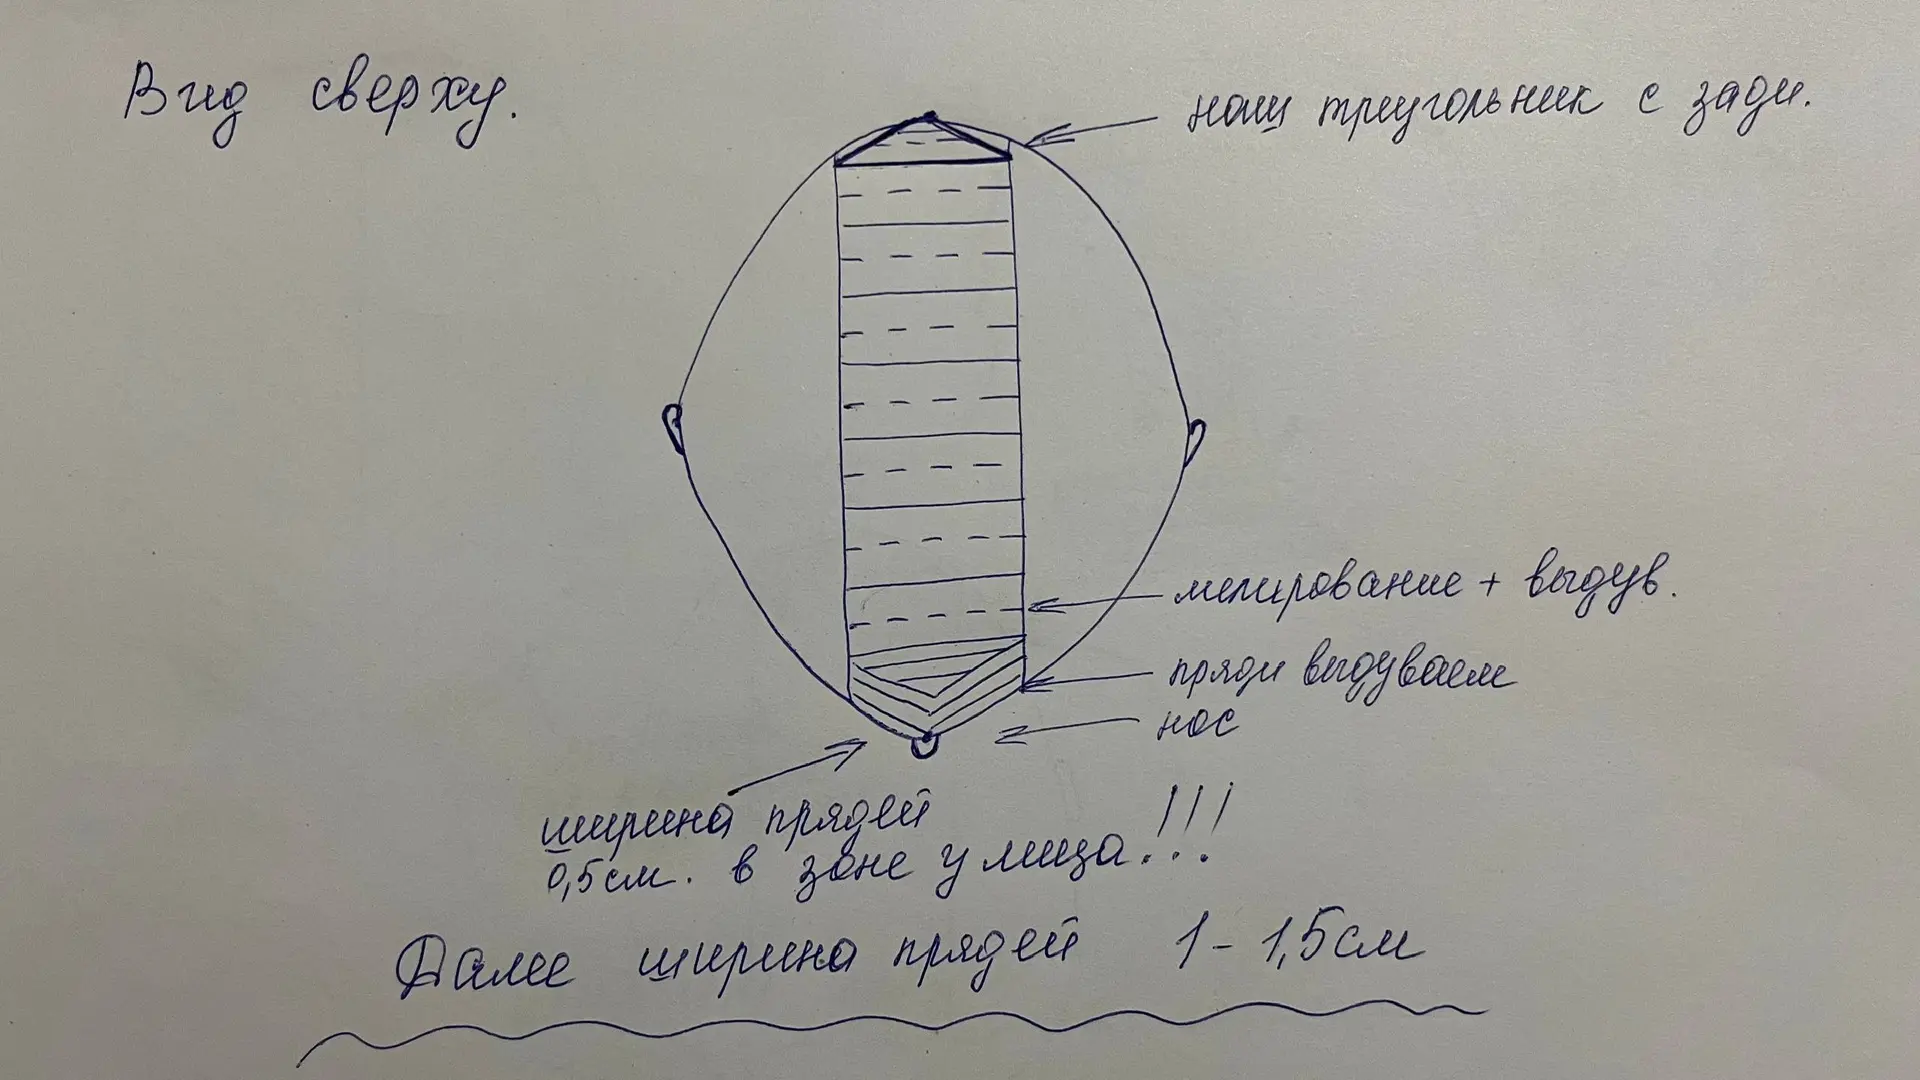 Вид сверху.
наш треугольник с зади.
мелирование + выдув.
пряди выдуваем
нос
ширина прядей
0,5см. в зоне у лица!!!
Далее ширина прядей 1-1,5см